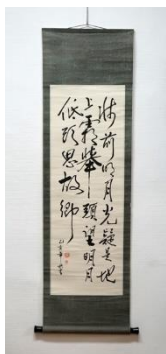 床前明月光疑是地
上霜舉頭望明月
低頭思故鄉